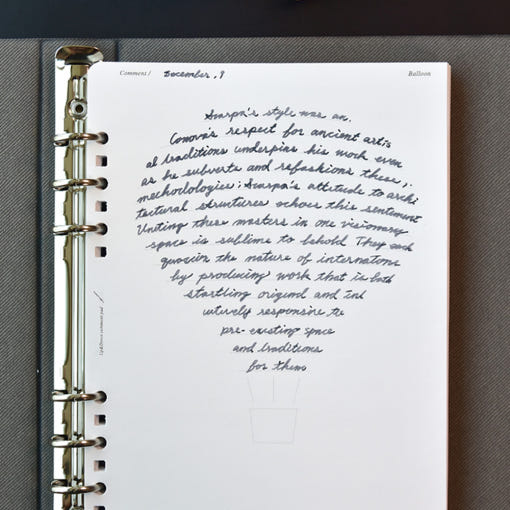 Comment / December . 9
Balloon
Scarpa's style was an.
Conova's respect for ancient artis
al traditions underpins his work even
as he subverts and refashions these,.
mechodologies; Scarpa's attitude to archi
tectural structures echoes this sentiment
Uniting these masters in one visionary
space is sublime to behold They each
the nature of
by producing work that is both
startling original and int
uitively responsive to
pre-existing space
and traditions
for them